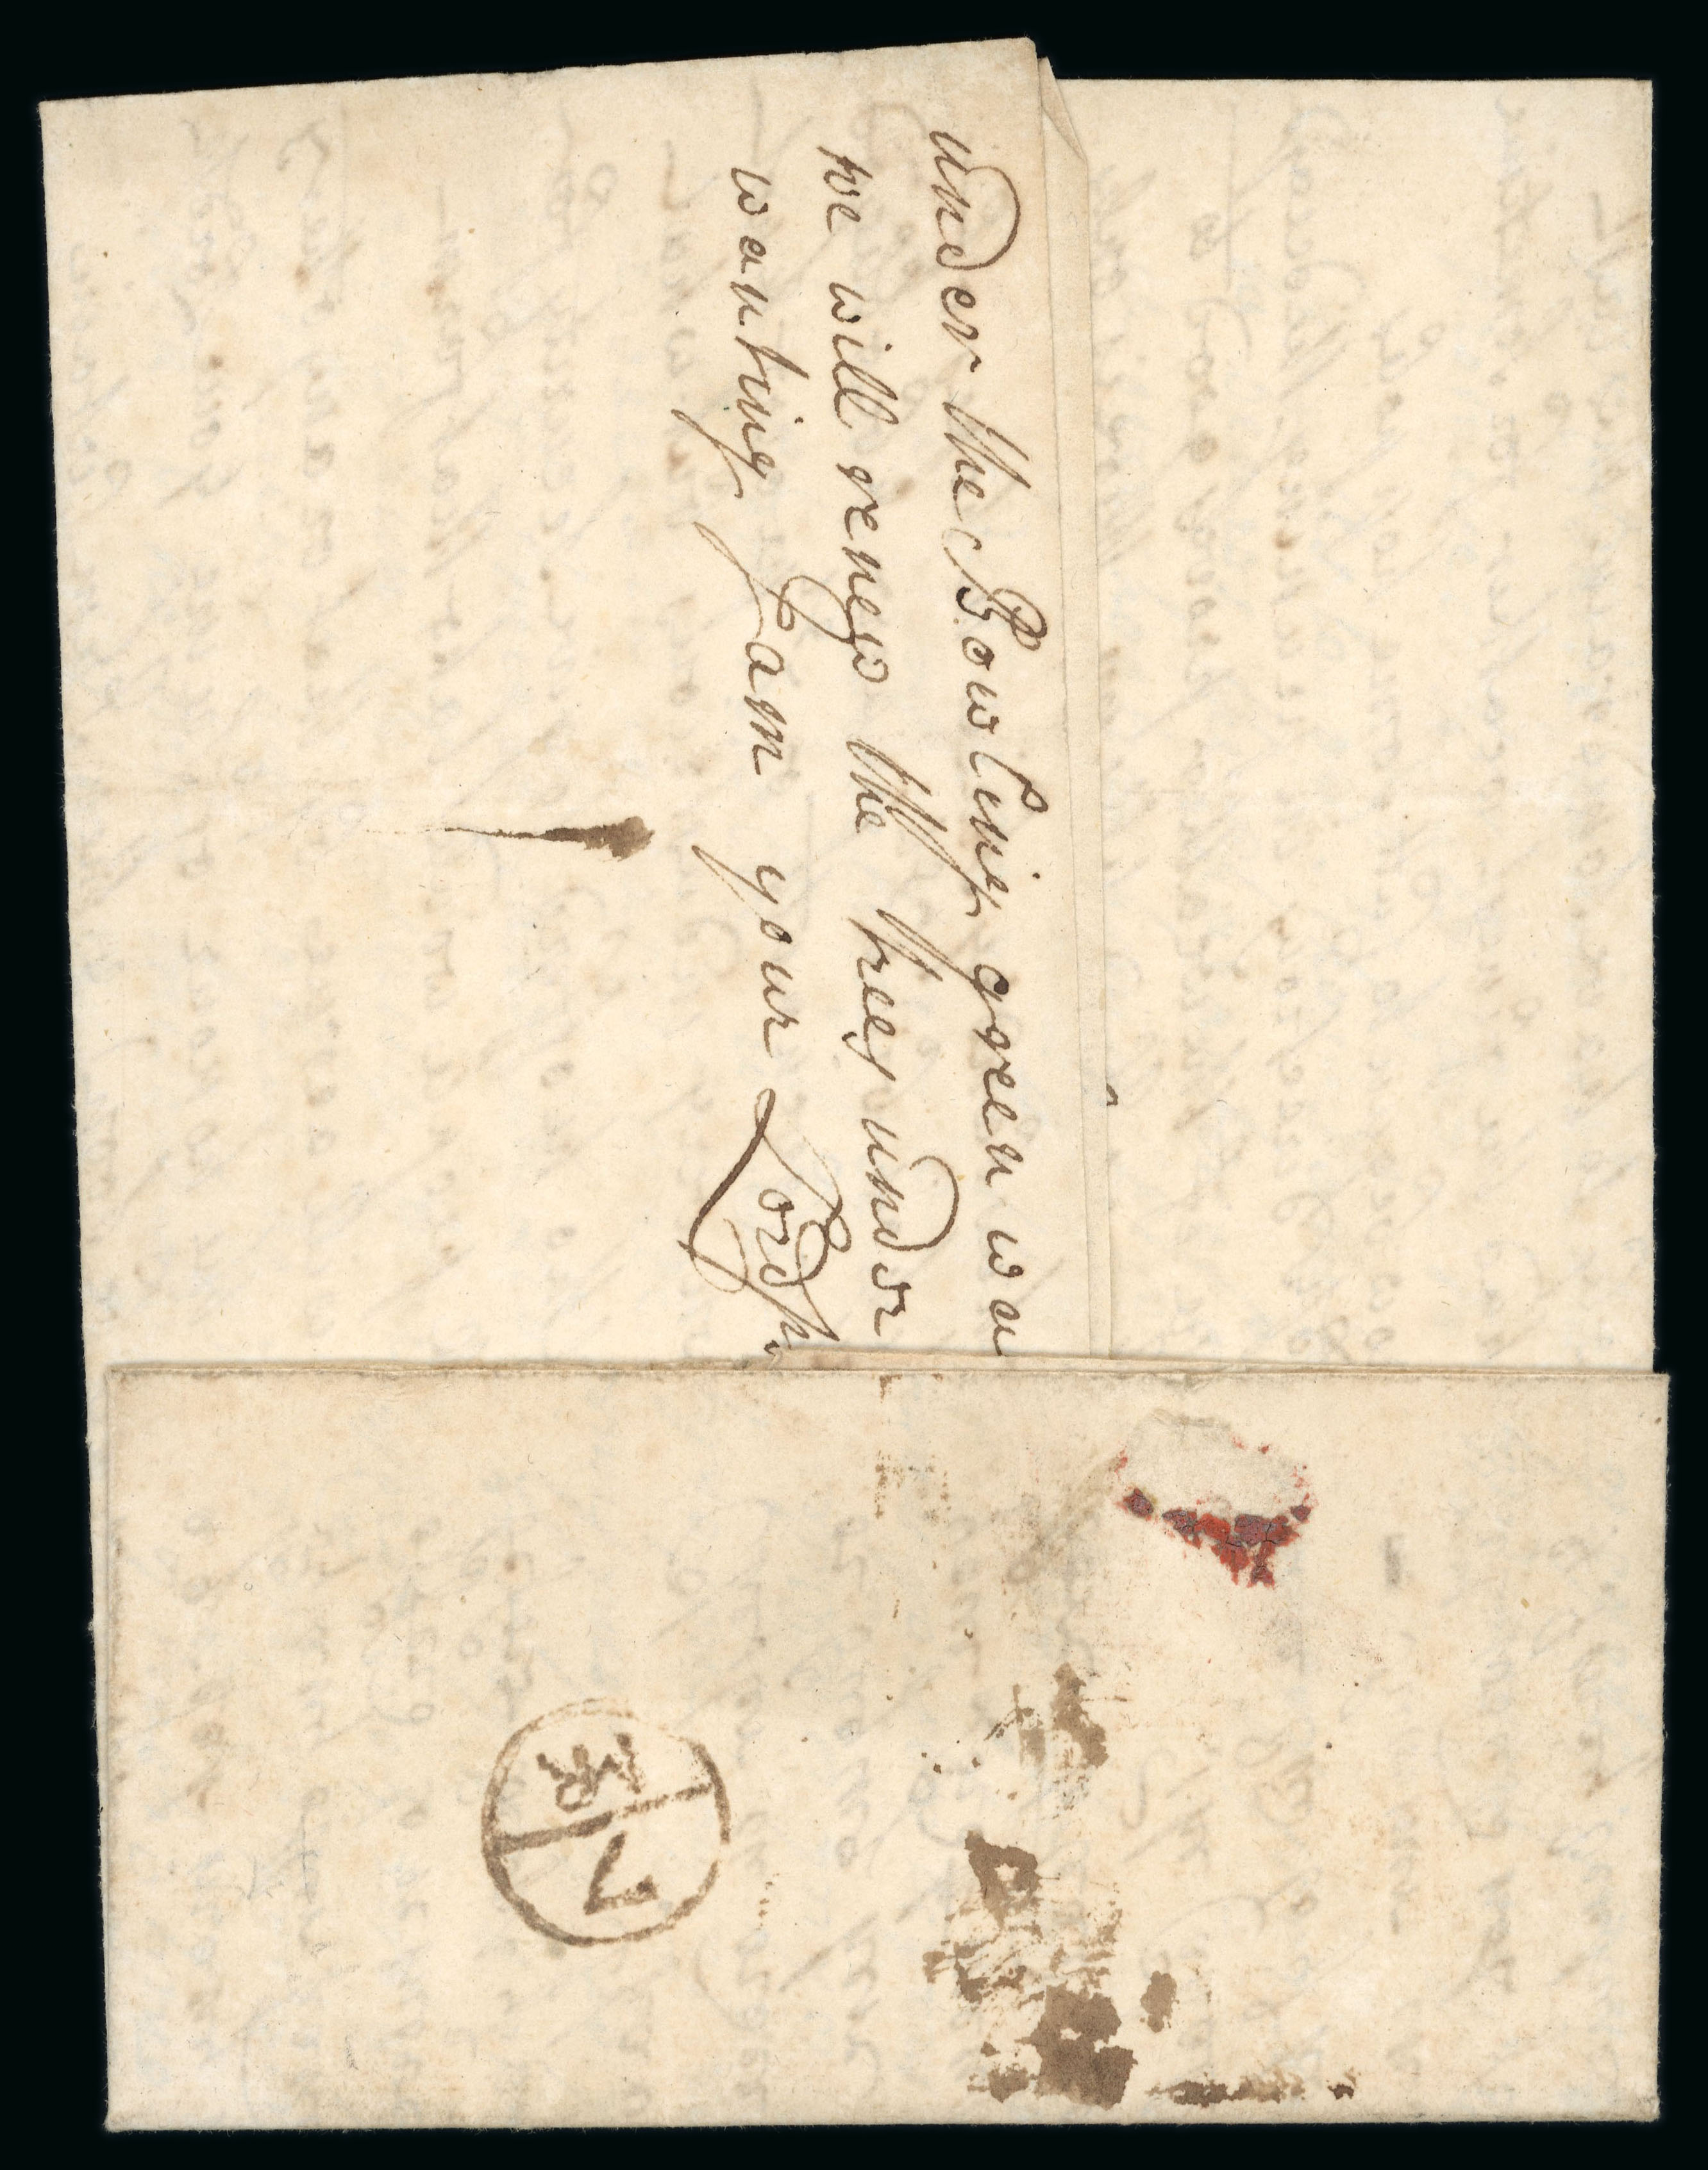 under the Bowling green wa
we will renew the trees under
wanting I am your Lordsh
MR
7